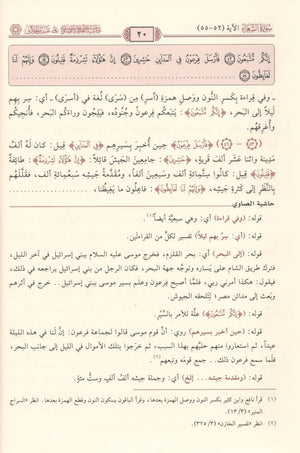 سورة الشعراء الآية (٥٢-٥٥)
٢٠
إِنَّكُم مُّتَّبَعُونَ ﴿٥٢﴾ فَأَرْسَلَ فِرْعَوْنُ فِي الْمَدَائِنِ حَاشِرِينَ ﴿٥٣﴾ إِنَّ هَؤُلَاءِ لَشِرْذِمَةٌ قَلِيلُونَ ﴿٥٤﴾ وَإِنَّهُمْ لَنَا
لَغَائِظُونَ ﴿٥٥﴾
- وفي قراءة بِكَسرِ النُّون ووَصلِ هَمزةِ (أَسرِ) من (سَرَى) لُغة في (أَسرَى) - أي: سِر بِهِم
ليلًا إلى البحر، ﴿إِنَّكُم مُّتَّبَعُونَ﴾: يَتبَعُكُم فِرعَونُ وجُنودُه، فيَلِجُونَ وراءَكُم البحر، فأُنجِيكُم
وأُغرِقُهُم.
﴿٥٣﴾ - ﴿٥٤﴾ ﴿فَأَرْسَلَ فِرْعَوْنُ﴾ حين أُخبِرَ بِسَيرِهِم ﴿فِي الْمَدَائِنِ﴾ قيل: كان لَهُ ألفُ
مَدينةٍ واثنا عَشَرَ ألفَ قَريةٍ، ﴿حَاشِرِينَ﴾: جامِعِينَ الجيشَ قائِلًا: ﴿إِنَّ هَؤُلَاءِ لَشِرْذِمَةٌ﴾: طائِفةٌ
﴿قَلِيلُونَ﴾ قيل: كانُوا سِتَّمائةِ ألفٍ وسَبعِينَ ألفًا، ومُقَدِّمةُ جَيشِه سَبعُمائةِ ألفٍ، فقَلَّلَهُم
بِالنَّظَرِ إلى كَثرةِ جَيشِه، ﴿وَإِنَّهُمْ لَنَا لَغَائِظُونَ﴾: فاعِلُونَ ما يَغِيظُنا،
حاشية الصاوي
قوله: (وفي قراءة) أي: وهي سبعيَّة أيضاً(١).
قوله: (أي: سِرْ بهم ليلاً) تفسير لكل من القراءتين.
قوله: (إلى البحر) أي: بحر القلزم، فخرج موسى عليه السلام ببني إسرائيل في آخر الليل،
فترك طريق الشام على يساره وتوجَّه جهة البحر، فكان الرجل من بني إسرائيل يراجعه في ذلك،
فيقول: هكذا أمرني ربي، فلما أصبح فرعون وعلم بسير موسى ببني إسرائيل.. خرج في أثرهم
وبعث إلى مدائن مصر؛ لتلحقه الجيوش.
قوله: (﴿إِنَّكُم مُّتَّبَعُونَ﴾) علَّة للأمر بالسير.
قوله: (حين أخبر بسيرهم) روي: أن قوم موسى قالوا لجماعة فرعون: إنَّ لنا في هذه الليلة
عيداً، ثم استعاروا منهم حليَّهم بهذا السبب، ثم خرجوا بتلك الأموال في الليل إلى جانب البحر،
فلما سمع فرعون ذلك.. جمع قومه وتبعهم(٢).
قوله: (ومقدمة جيشه... إلخ) أي: وجملة جيشه ألف ألفٍ وستُّ مئةِ.
(١) قرأ نافع وابن كثير بكسر النون ووصل الهمزة بعدها، وقرأ الباقون بسكون النون وقطع الهمزة بعدها. انظر «السراج
المنير» (٣/ ١٣).
(٢) انظر «تفسير الخازن» (٣/ ٣٢٥).